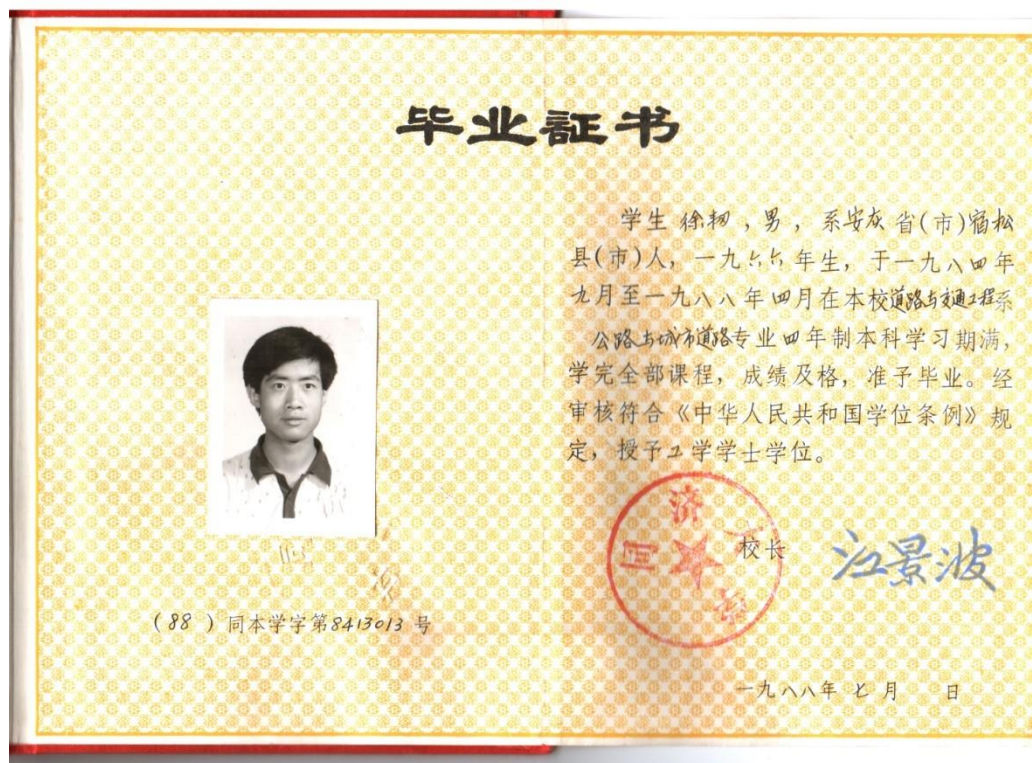 毕业証书
学生 徐韧 ，男 ，系安灰 省(市)宿松
县(市)人，一九六六年生，于一九八四年
九月至一九八八年四月在本校道路与交通工程系
公路与城市道路专业四年制本科学习期满，
学完全部课程，成绩及格，准予毕业。经
审核符合《中华人民共和国学位条例》规
定，授予工学学士学位。
同济大学
校长 江景波
(88 ) 同本学字第8413013 号
一九八八年 七 月 日